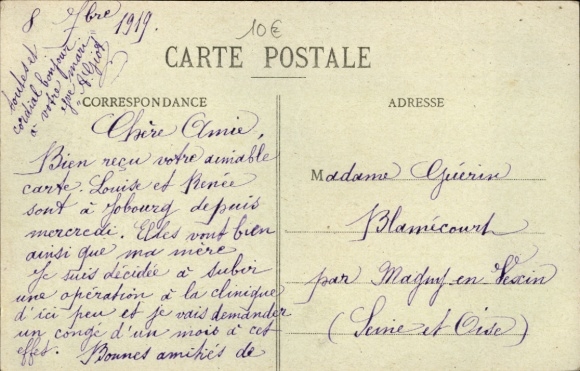 8 7bre 1919.
10€
CARTE POSTALE
CORRESPONDANCE
ADRESSE
Chère Amie,
Bien reçu votre aimable
carte. Louise et Renée
sont à Jobourg depuis
mercredi. Elles vont bien
ainsi que ma mère
Je suis décidée à subir
une opération à la clinique
d'ici peu et je vais demander
un congé d'un mois à cet
effet. Bonnes amitiés de
toutes et
cordial bonjour
à votre mari
Madame Guérin
Blamécourt
par Magny en Vexin
(Seine et Oise)